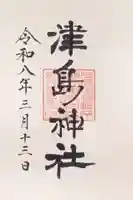 津島神社
令和八年三月十三日